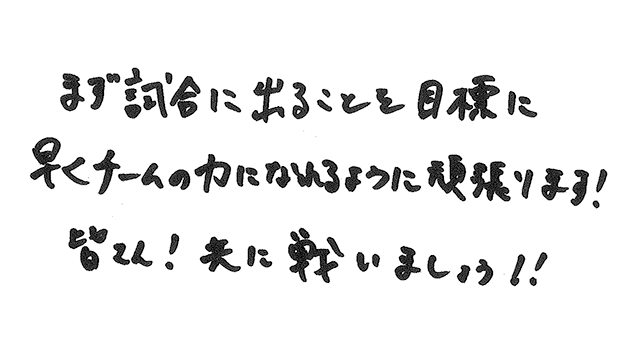 まず試合に出ることを目標に
早くチームの力になれるように頑張ります!
皆さん!共に戦いましょう!!